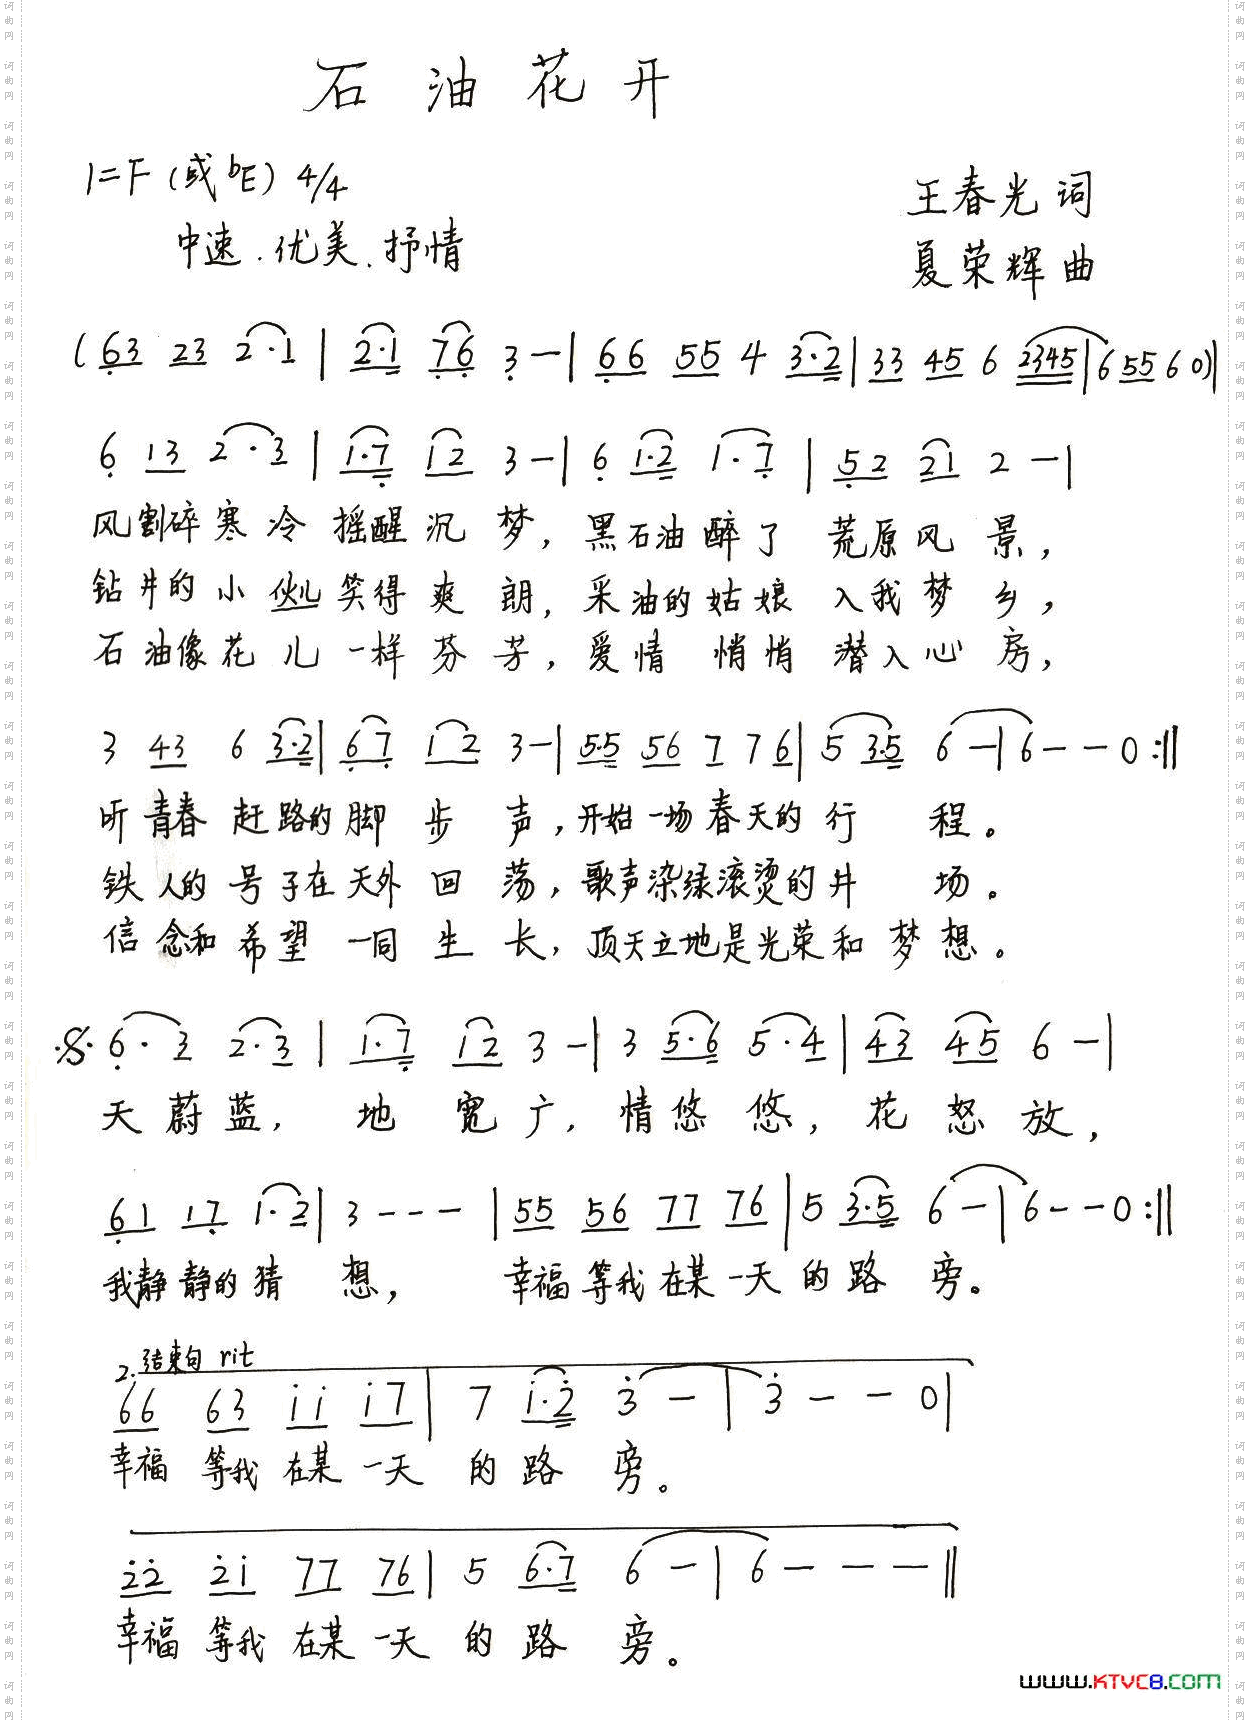 石油花开
1=F (或bE) 4/4
王春光 词
中速.优美.抒情
夏荣辉 曲
(63 23 2·1 | 2·1 76 3 — | 66 55 4 3·2 | 33 45 6 2345 | 6 55 6 0) |
6 13 2·3 | 1·7 12 3 — | 6 1·2 1·7 | 52 21 2 — |
风割碎寒冷摇醒沉梦,黑石油醉了荒原风景,
钻井的小伙儿笑得爽朗,采油的姑娘入我梦乡,
石油像花儿一样芬芳,爱情悄悄潜入心房,
3 43 6 3·2 | 67 12 3 — | 5·5 56 7 76 | 5 3·5 6 — | 6 — — 0 :||
听青春赶路的脚步声,开始一场春天的行程。
铁人的号子在天外回荡,歌声染绿滚烫的井场。
信念和希望一同生长,顶天立地是光荣和梦想。
𝄋 6·3 2·3 | 1·7 12 3 — | 3 5·6 5·4 | 43 45 6 — |
天蔚蓝,地宽广,情悠悠,花怒放,
61 17 1·2 | 3 - - - | 55 56 77 76 | 5 3·5 6 — | 6 - - 0 :||
我静静的猜想,幸福等我在某一天的路旁。
2.结束句 rit
66 63 i i i7 | 7 i·2̇ 3̇ — | 3̇ — — 0 |
幸福等我在某一天的路旁。
2̇2̇ 2̇i 77 76 | 5 6·7 6 — | 6 — — — ||
幸福等我在某一天的路旁。
www.KTVC8.com
词曲网